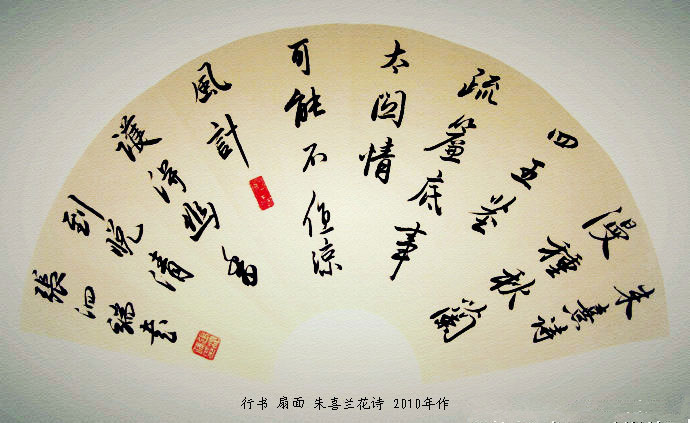 朱熹詩
漫種秋蘭
四五莖
疏簾底事
太関情
可能不作涼
風計
護得幽香
到晚清
張泗瑞書
行书 扇面 朱喜兰花诗 2010年作